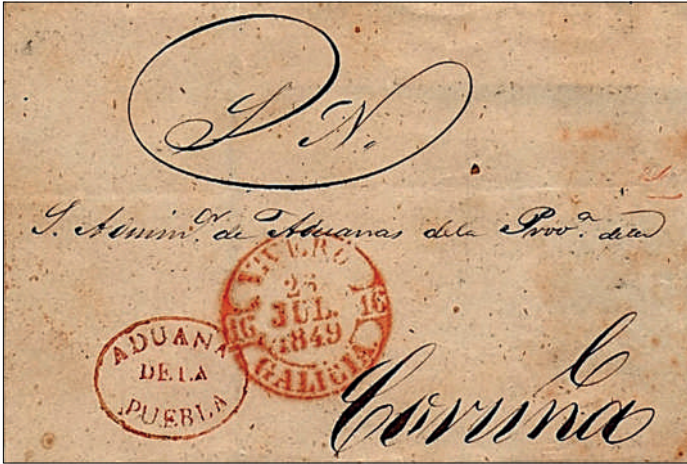 S. N.
S. Admin.or de Aduanas dela Prov.a dela
VIVERO
JUL.
16 16
1849
GALICIA
ADUANA
DE LA
PUEBLA
Coruña